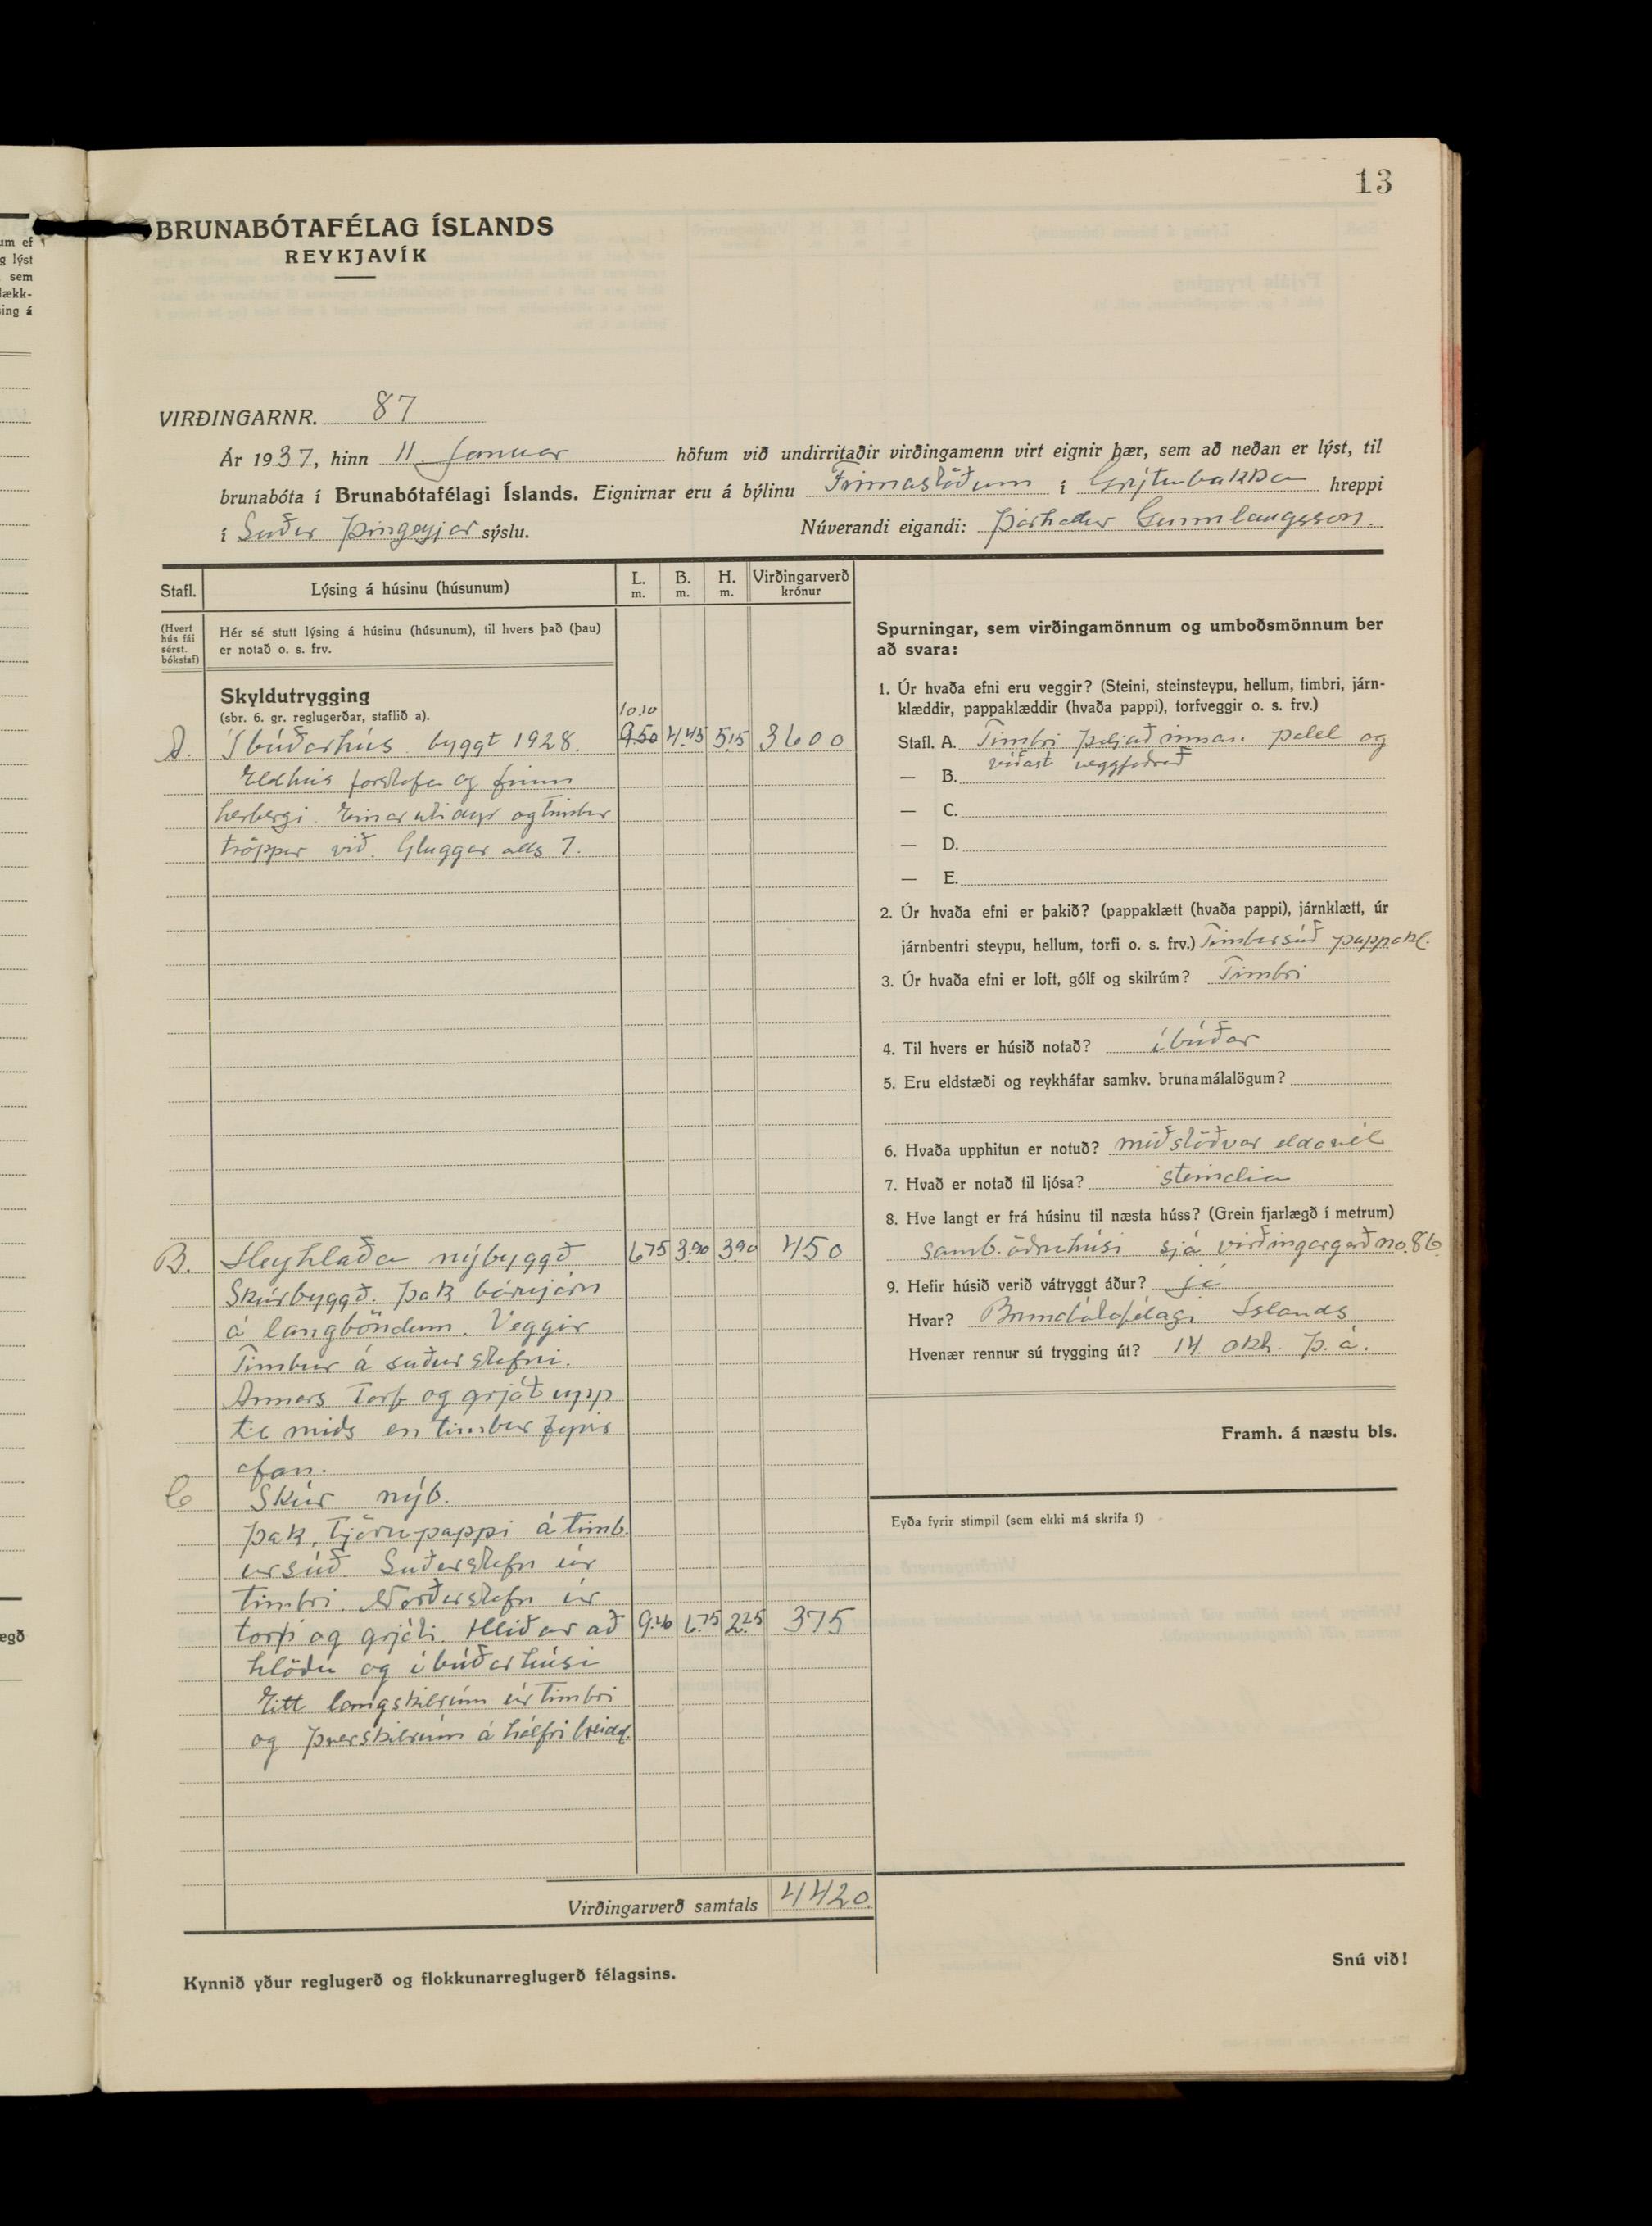 13
BRUNABÓTAFÉLAG ÍSLANDS
REYKJAVÍK
VIRÐINGARNR. 87
Ár 1937, hinn 11 Januar höfum við undirritaðir virðingamenn virt eignir þær, sem að neðan er lýst, til
brunabóta í Brunabótafélagi Íslands. Eignirnar eru á býlinu Finnastöðum í Grýtubakka hreppi
í Suður Þingeyjar sýslu. Núverandi eigandi: Þórhallur Gunnlaugsson.
Stafl. Lýsing á húsinu (húsunum) L. m. B. m. H. m. Virðingarverð krónur
(Hvert hús fái sérst. bókstaf)
Hér sé stutt lýsing á húsinu (húsunum), til hvers það (þau)
er notað o. s. frv.
Skyldutrygging
(sbr. 6. gr. reglugerðar, staflið a).
10.10
A. Íbúðarhús byggt 1928. 9.50 4.45 5.15 3600
Eldhús forstofa og fimm
herbergi. Einar útidyr og timbur
tröppur við. Gluggar alls 7.
B. Heyhlaða nýbyggð 6.75 3.90 3.90 450
Skúrbyggð. Þak bárujárn
á langböndum. Veggir
Timbur á suðurstefni.
Annars Torf og grjót upp
til miðs en timbur fyrir
ofan.
C Skúr nýb.
Þak, Tjörupappi á timb
ursúð. Suðurstefn úr
timbri. Norðurstefn úr
torfi og grjóti. Hliðar að 9.20 6.75 2.25 375
hlöðu og íbúðarhúsi
Eitt langskilrúm úr timbri
og þverskilrúm á hálfri breidd.
Virðingarverð samtals 4420.
Kynnið yður reglugerð og flokkunarreglugerð félagsins.
Spurningar, sem virðingamönnum og umboðsmönnum ber
að svara:
1. Úr hvaða efni eru veggir? (Steini, steinsteypu, hellum, timbri, járn-
klæddir, pappaklæddir (hvaða pappi), torfveggir o. s. frv.)
Stafl. A. Timbri þiljað innan. og
víðast veggfóðrað
— B.
— C.
— D.
— E.
2. Úr hvaða efni er þakið? (pappaklætt (hvaða pappi), járnklætt, úr
járnbentri steypu, hellum, torfi o. s. frv.) Timbursúð pappakl.
3. Úr hvaða efni er loft, gólf og skilrúm? Timbri
4. Til hvers er húsið notað? íbúðar
5. Eru eldstæði og reykháfar samkv. brunamálalögum?
6. Hvaða upphitun er notuð? miðstöðvar eldavél
7. Hvað er notað til ljósa? steinolia
8. Hve langt er frá húsinu til næsta húss? (Grein fjarlægð í metrum)
samb. öðru húsi sjá virðingargerð no. 86.
9. Hefir húsið verið vátryggt áður? já
Hvar? Brunabótafélagi Íslands
Hvenær rennur sú trygging út? 14 okt. þ. á.
Framh. á næstu bls.
Eyða fyrir stimpil (sem ekki má skrifa í)
Snú við!